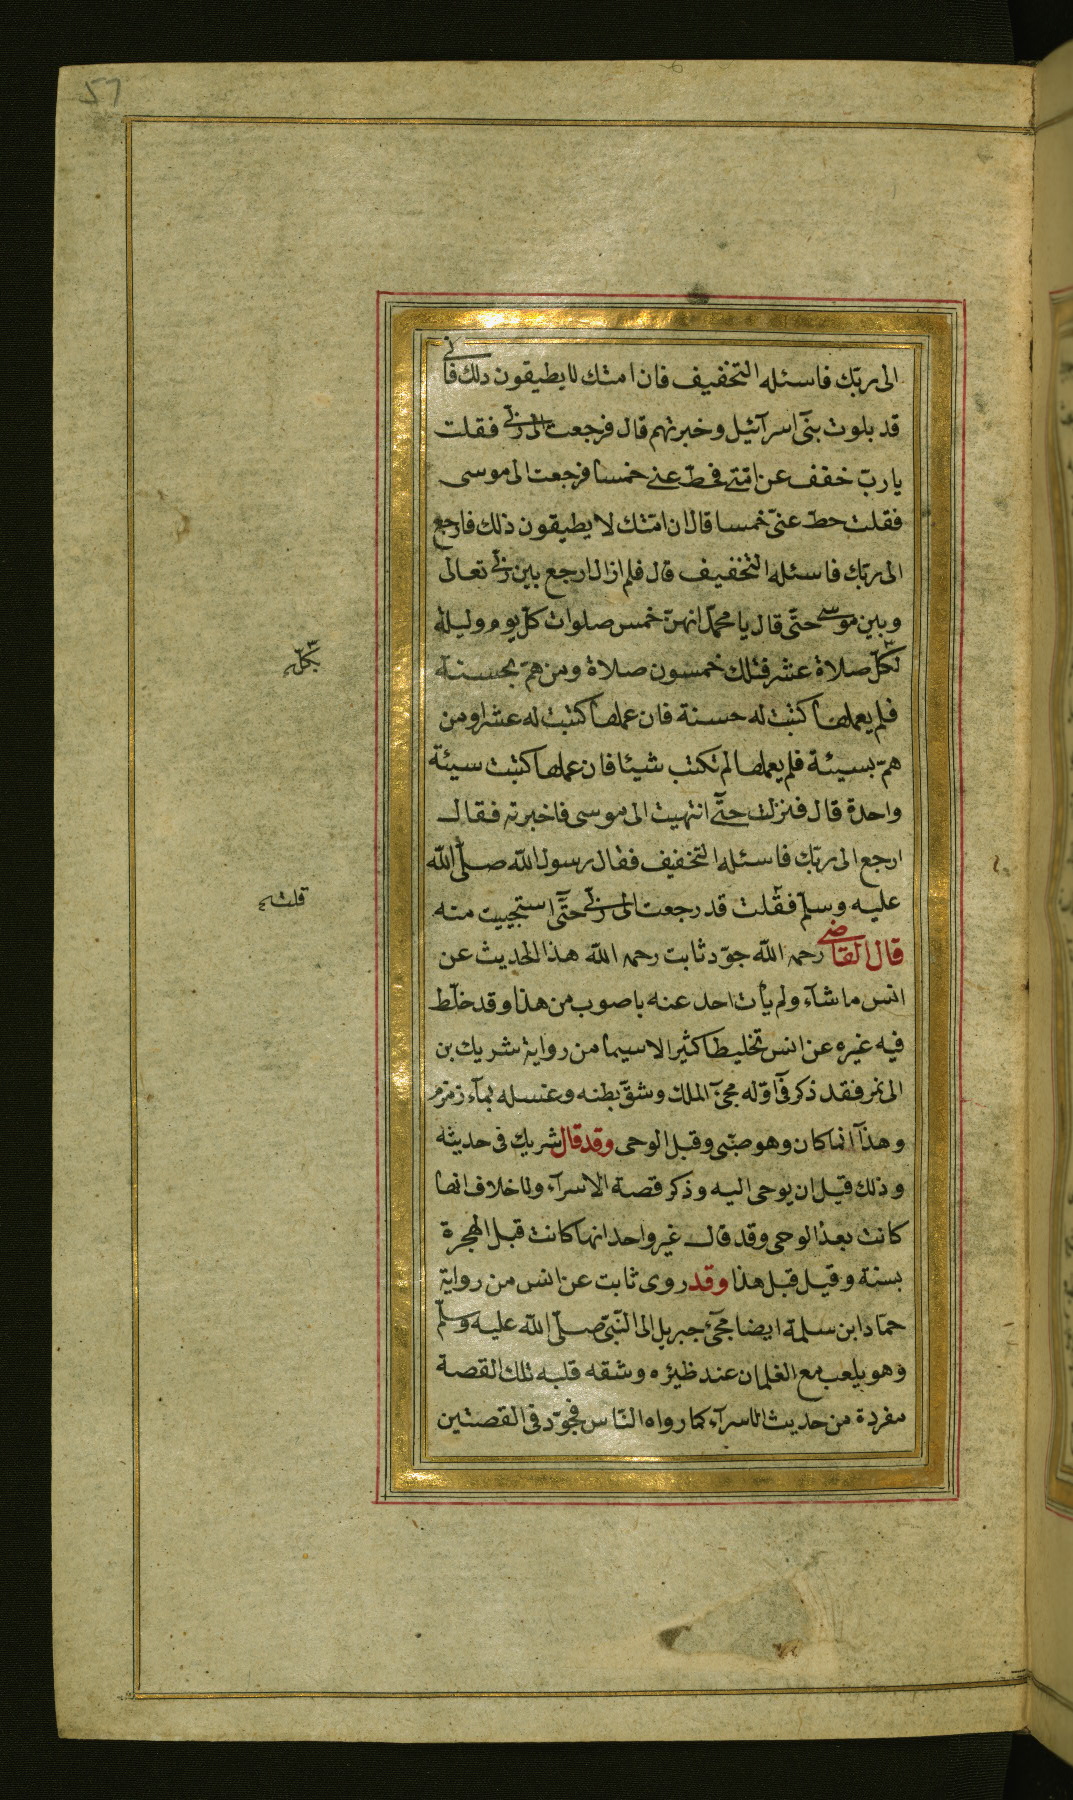 57
الى ربّك فاسئله التخفيف فان امتك لا يطيقون ذلك فانى
قد بلوت بنى اسرآئيل وخبرتهم قال فرجعت الى ربّى فقلت
يا ربّ خفف عن امّتى فحطّ عنى خمسا فرجعت الى موسى
فقلت حطّ عنىّ خمسا قال ان امّتك لا يطيقون ذلك فارجع
الى ربّك فاسئله التخفيف قال فلم ازال ارجع بين ربّى تعالى
وبين موسى حتّى قال يا محمّد انهنّ خمس صلوات كلّ يوم وليلة
لكلّ صلاة عشر فتلك خمسون صلاة ومن همّ بحسنة
بكلّ
فلم يعملها كتبت له حسنة فان عملها كتبت له عشرا ومن
همّ بسيئة فلم يعملها لم تكتب شيئا فان عملها كتبت سيئة
واحدة قال فنزلت حتّى انتهيت الى موسى فاخبرته فقال
ارجع الى ربّك فاسئله التخفيف فقال رسول الله صلّى الله
عليه وسلّم فقلت قد رجعت الى ربّى حتّى استحييت منه
قلت
قال القاضى رحمه الله جوّد ثابت رحمه الله هذا الحديث عن
انس ما شآء ولم يأت احد عنه باصوب من هذا وقد خلّط
فيه غيره عن انس تخليطا كثيرا لاسيما من رواية شريك بن
ابى نمر فقد ذكر فى اوّله مجئ الملك وشقّ بطنه وغسله بمآء زمزم
وهذا انما كان وهو صبّى وقبل الوحى وقد قال شريك فى حديثه
وذلك قبل ان يوحى اليه وذكر قصة الاسرآء ولا خلاف انها
كانت بعد الوحى وقد قال غير واحد انها كانت قبل الهجرة
بسنة وقيل قبل هذا وقد روى ثابت عن انس من رواية
حمّاد ابن سلمة ايضا مجئ جبريل الى النّبىّ صلّى الله عليه وسلّم
وهو يلعب مع الغلمان عند ظئره وشقه قلبه تلك القصة
مفردة من حديث الاسرآء كما رواه النّاس فجوّد فى القصتين